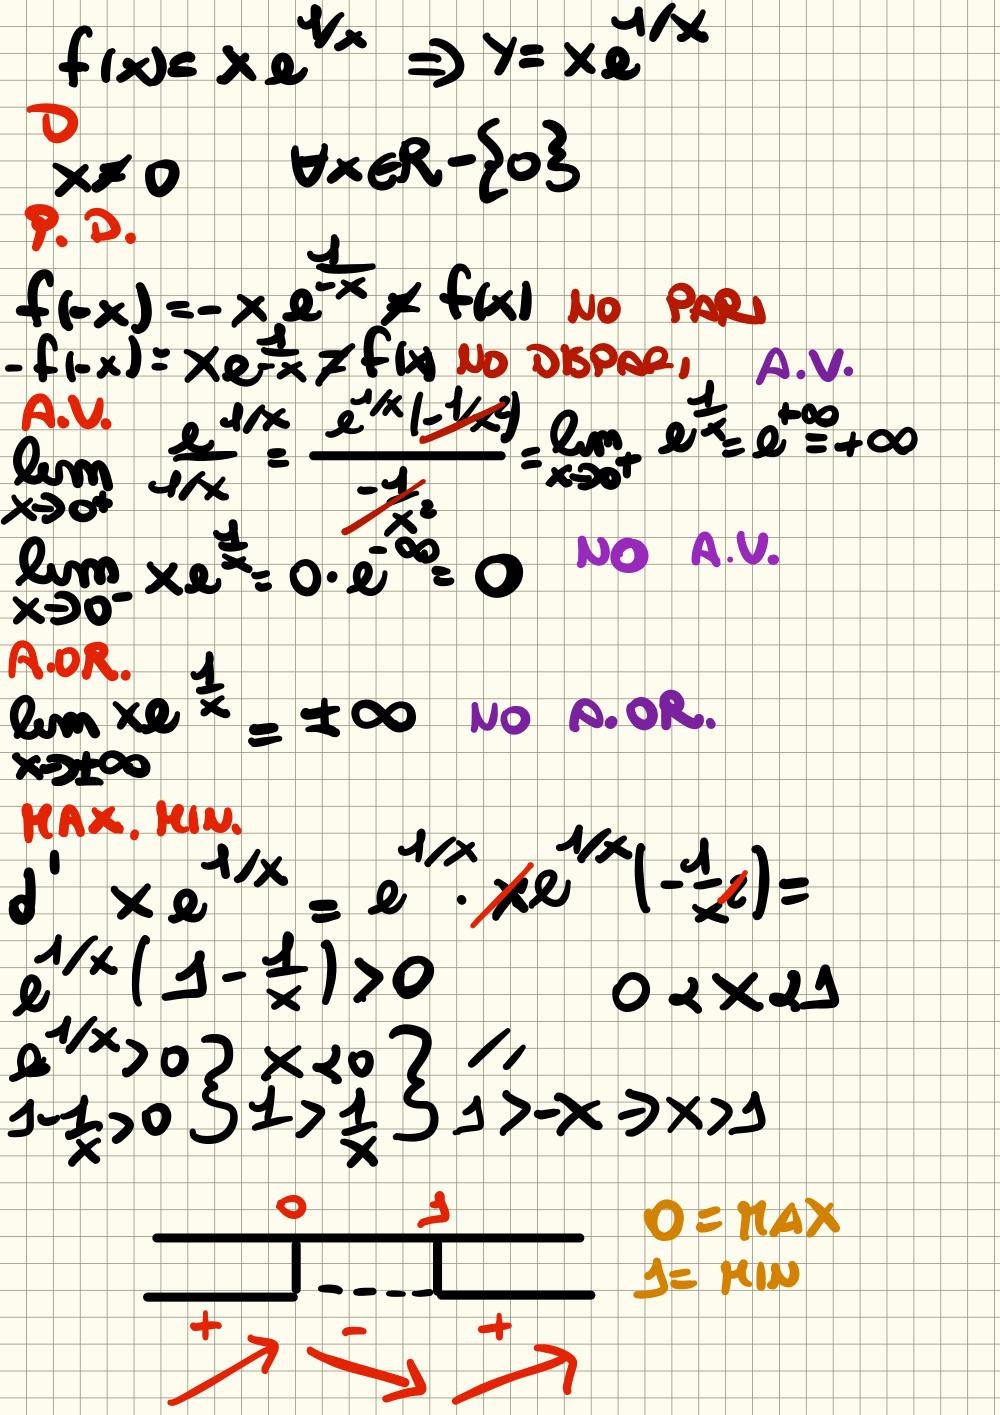 f(x)= x e^1/x ⇒ y= x e^1/x
D
x≠0 ∀x∈R-{0}
P. D.
f(-x)=-x e^1/-x ≠ f(x) NO PARI
-f(-x)= xe^1/-x ≠ f(x) NO DISPARI A.V.
A.V.
lim x→0⁺ e^1/x / 1/x = e^1/x (-1/x²) / -1/x² = lim x→0⁺ e^1/x = e^+∞ = +∞
lim x→0⁻ xe^1/x = 0·e^-∞ = 0 NO A.V.
A.OR.
lim x→±∞ xe^1/x = ±∞ NO A.OR.
MAX. MIN.
d' x e^1/x = e^1/x · xe^1/x (-1/x²) =
e^1/x (1-1/x) >0 0<x<1
e^1/x >0 } x<0 } //
1-1/x >0 } 1> 1/x } 1>-x ⇒ x>1
0 1 0 = MAX
1= MIN
+ - +